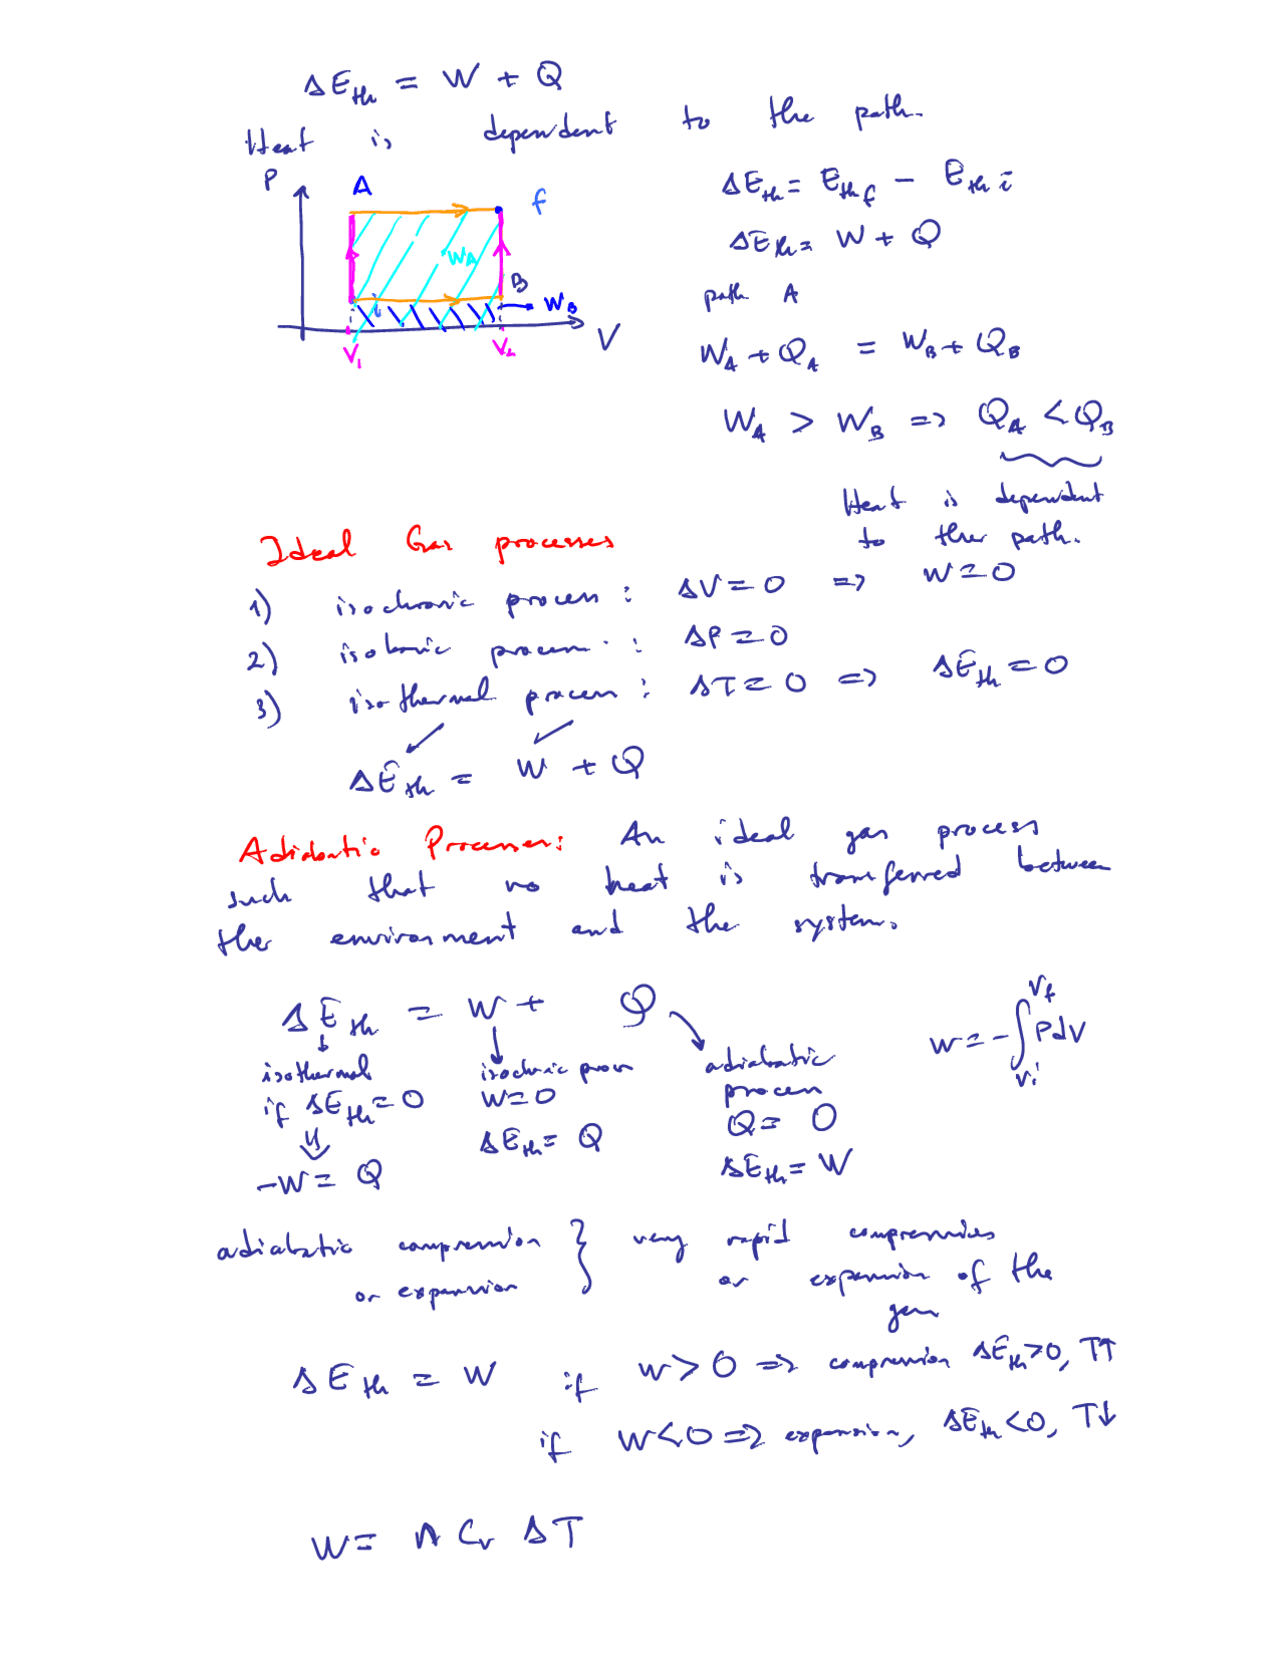 ΔE_th = W + Q
Heat is dependent to the path.
P
A
f
W_A
B
i
W_B
V
V_1
V_2
ΔE_th = E_th f - E_th i
ΔE_th = W + Q
path A
W_A + Q_A = W_B + Q_B
W_A > W_B => Q_A < Q_B
Heat is dependent
to ther path.
Ideal Gas processes
1) isochoric process : ΔV = 0 => W = 0
2) isobaric process : ΔP = 0
3) isothermal process : ΔT = 0 => ΔE_th = 0
ΔE_th = W + Q
Adiabatic Processes: An ideal gas process
such that no heat is transferred between
the environment and the system.
ΔE_th = W + Q
W = -∫_{V_i}^{V_f} P dV
isothermal
if ΔE_th = 0
⇓
-W = Q
isochoric process
W = 0
ΔE_th = Q
adiabatic
process
Q = 0
ΔE_th = W
adiabatic compression
or expansion
} very rapid compression
or expansion of the
gas
ΔE_th = W if W > 0 => compression ΔE_th > 0, T↑
if W < 0 => expansion, ΔE_th < 0, T↓
W = n C_v ΔT